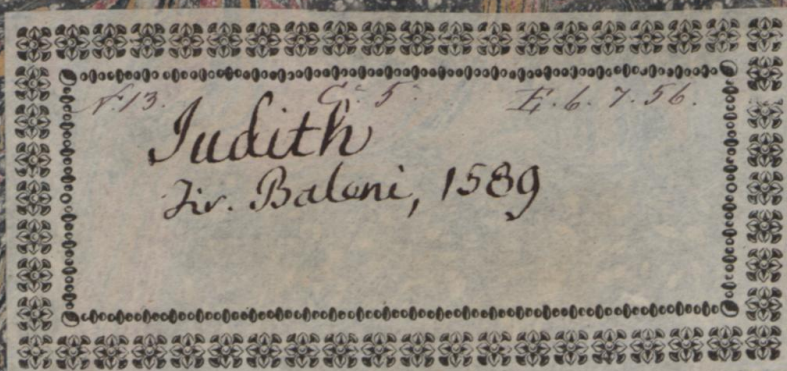 N. 13. C. 5. E. 6. 7. 56.
Judith
Fir. Baleni, 1589